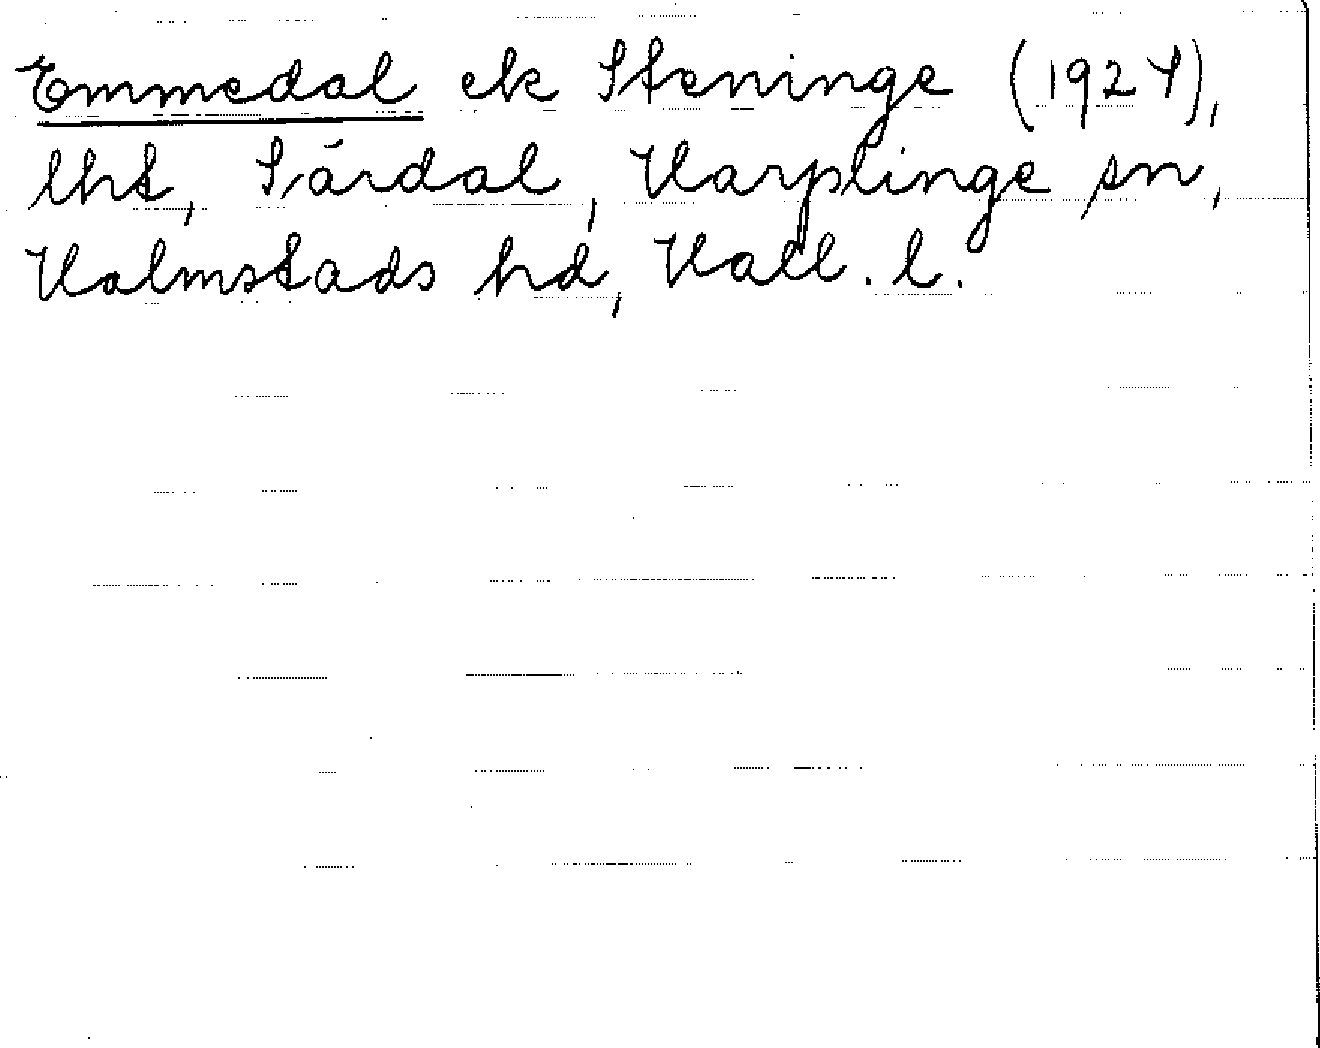 Emmedal ek Steninge (1924),
lht, Särdal, Harplinge sn,
Halmstads hd, Hall. l.